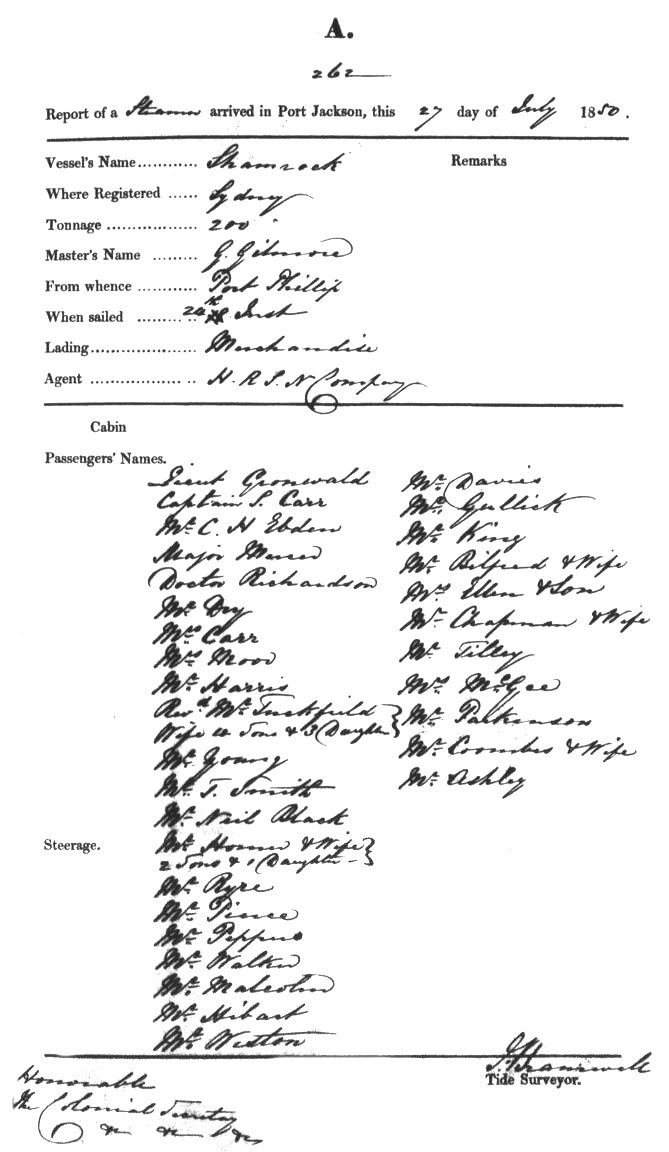 A.
262
Report of a Steamer arrived in Port Jackson, this 27 day of July 1850.
Vessel's Name............ Shamrock
Remarks
Where Registered ...... Sydney
Tonnage .................. 200
Master's Name ......... G. Gilmore
From whence ............ Port Phillip
When sailed ......... .. 24th Inst
Lading..................... Merchandise
Agent .................. .. H. R. S. N Company
Cabin
Passengers' Names.
Lieut Gronwald
Captain S. Carr
Mr. C. H Ebden
Major Mercer
Doctor Richardson
Mr. Dry
Mrs. Carr
Mrs. Moor
Mr. Harris
Revd. Mr. Tuckfield
Wife 4 Sons & 3 Daughter
Mr. Young
Mr. T. Smith
Mr. Neil Black
Steerage.
Mr. Horner & Wife
2 Sons & 1 Daughter
Mr. Ryre
Mr. Pince
Mr. Pepper
Mr. Walker
Mr. Malcolm
Mr. Hibart
Mr. Weston
Mr. Davies
Mrs. Gullick
Mr. King
Mr. Bilfred & Wife
Mrs. Ellen & Son
Mr. Chapman & Wife
Mr. Tilley
Mrs. McGee
Mr. Parkinson
Mr. Coombes & Wife
Mr. Ashley
Tide Surveyor.
Honorable
The Colonial Secretary
&c &c &c